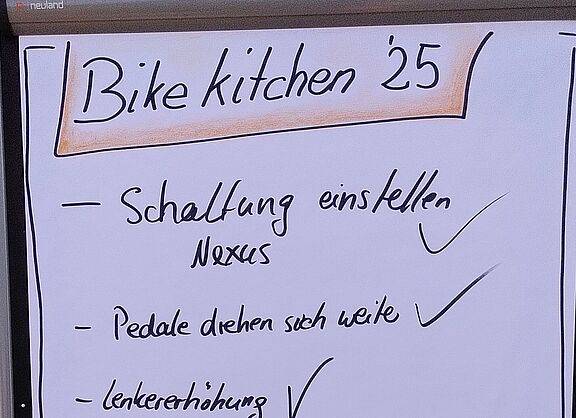 neuland
Bike kitchen '25
— Schaltung einstellen ✓
Nexus
– Pedale drehen sich weite ✓
– Lenkererhöhung ✓